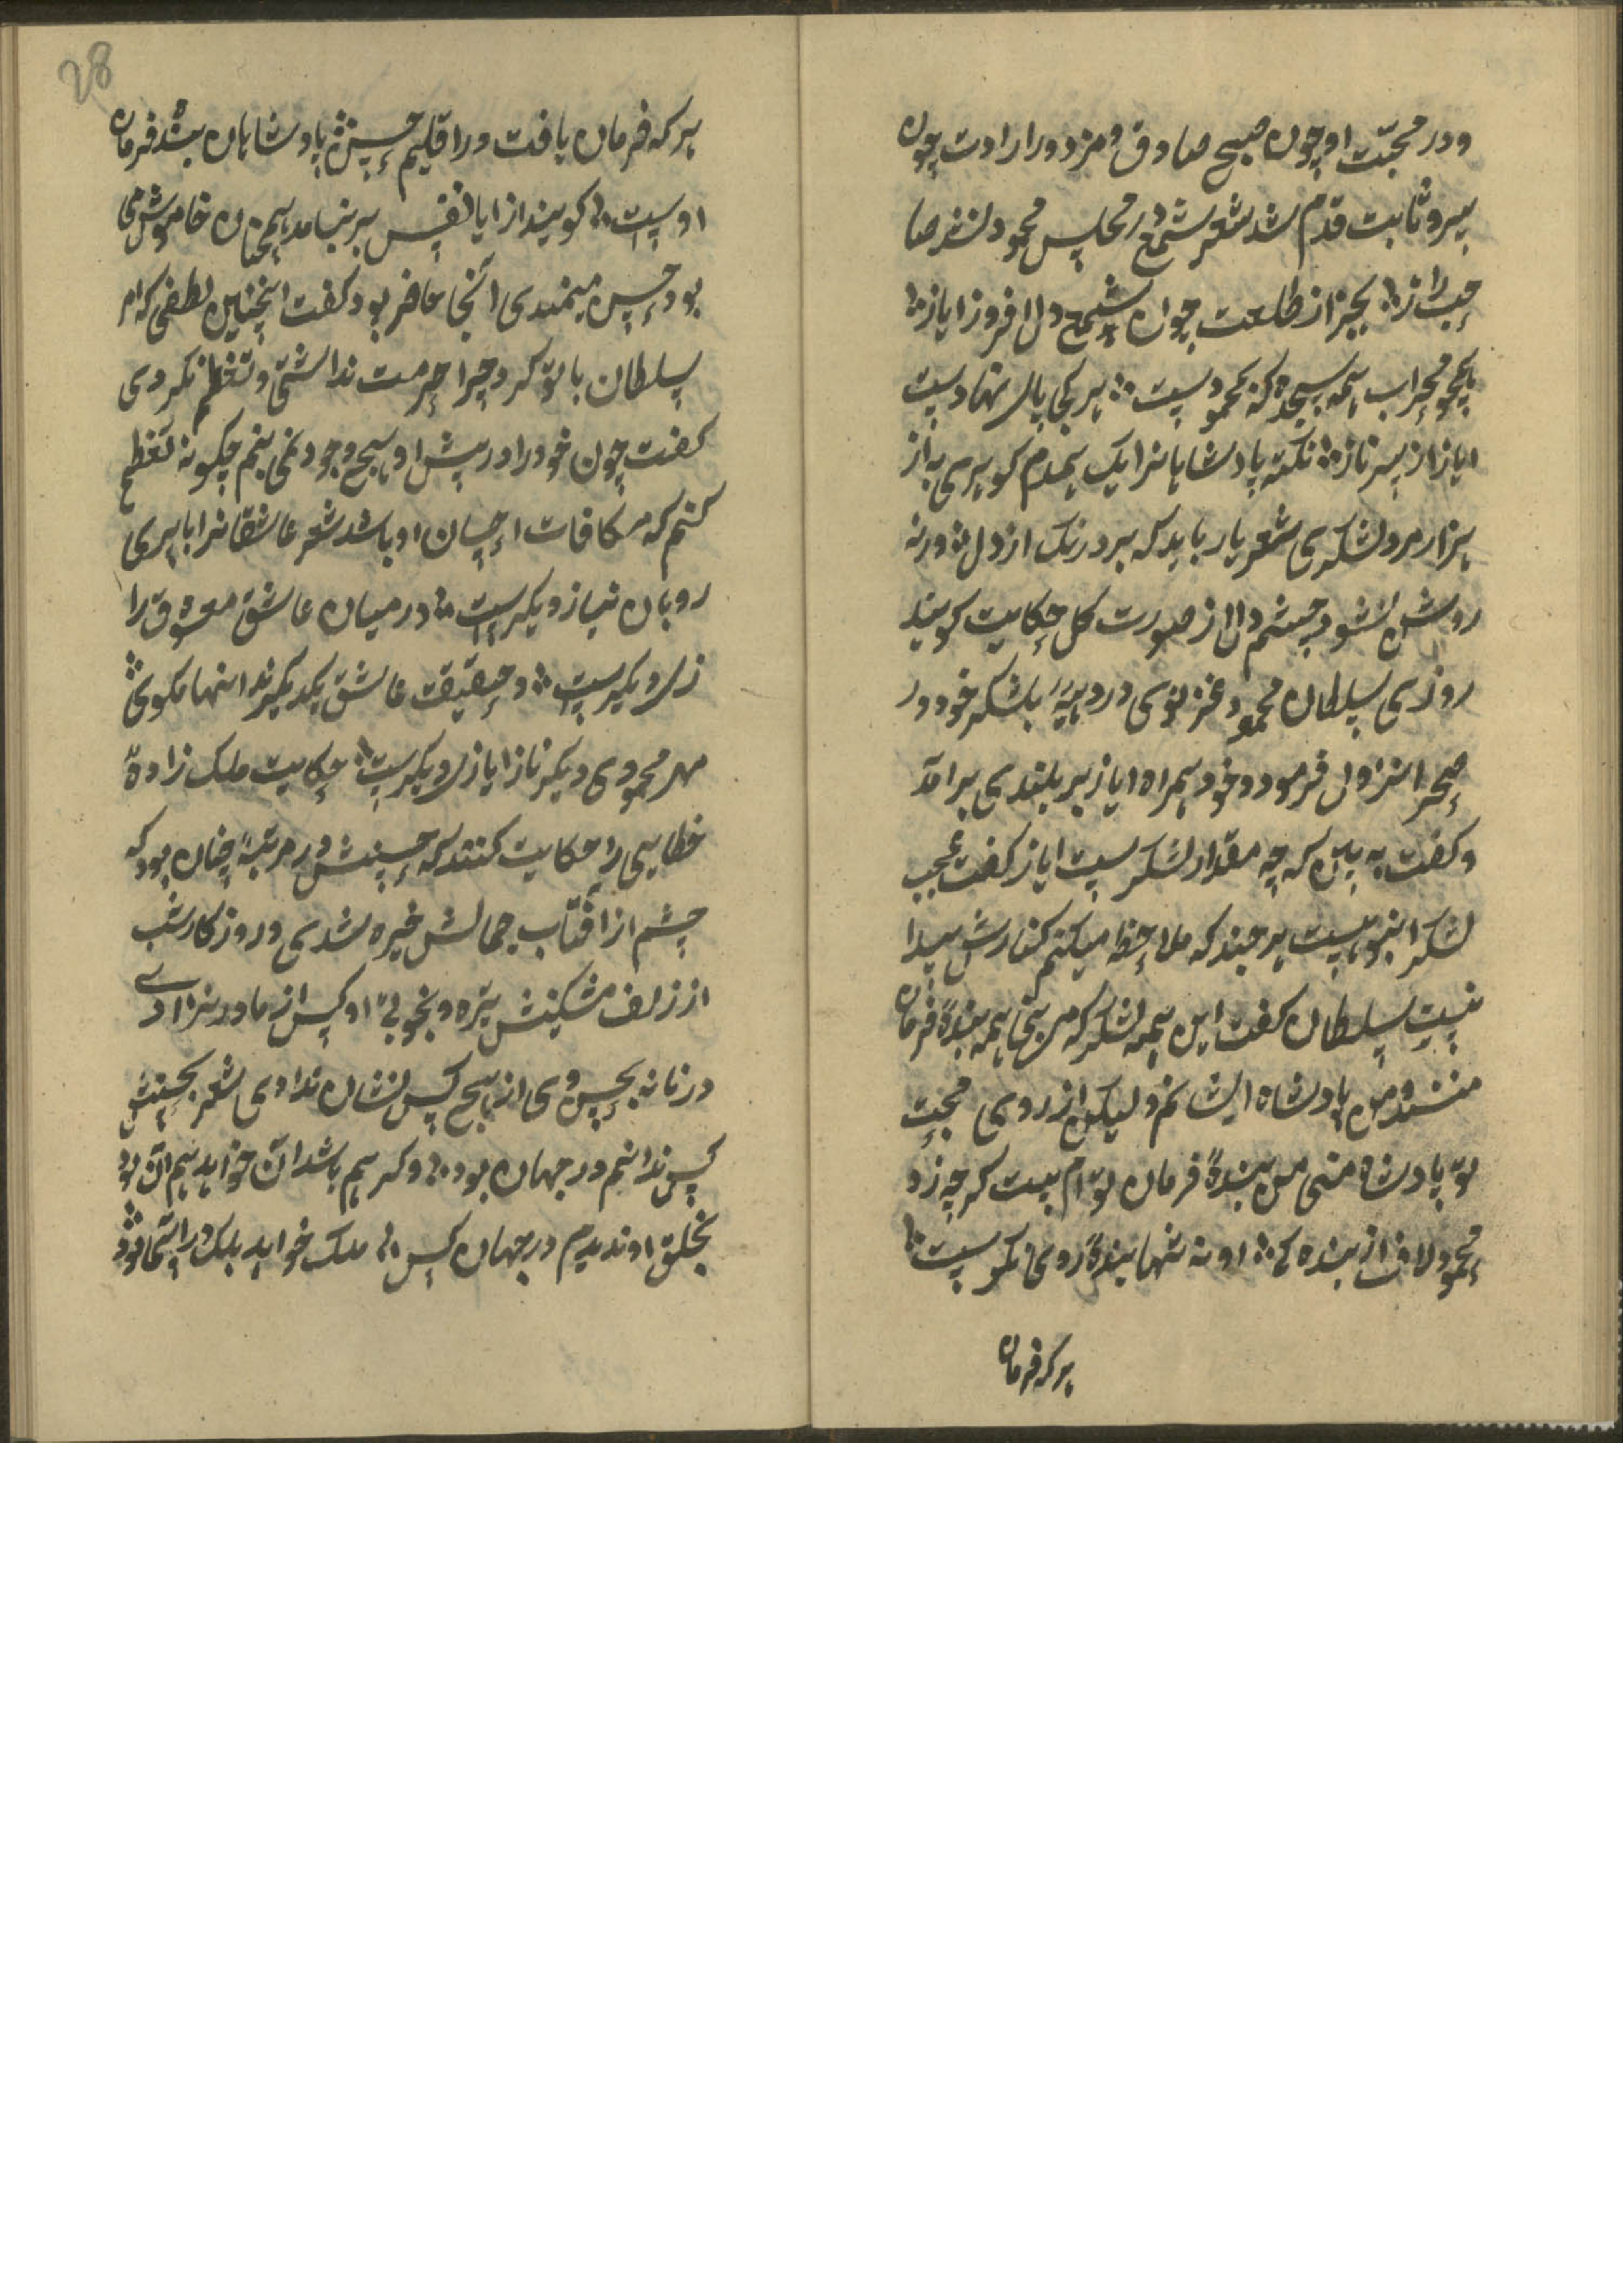 ودر محبّت او چون صبح صادق و مزدور ارادت چون
سرو ثابت قدم شد شعر شمع در مجلس محمود نشد صا
حب راز بجز از طلعت چون شمع دل افروز ایاز
همچو محراب همه سجده که محمودست هر کجا پای نهادست
ایاز از سر ناز نکته پادشاهانرا یک همدم کوهری به از
هزار مرد لشکری شعر یار باید که برد زنک از دل ورنه
روشن نشود چشم دل از صورت کل حکایت کویند
روزی سلطان محمود غزنوی در دهیه با لشکر خود در
صحرا نزول فرمود و خود همراه ایاز بر بلندی برامد
وکفت به بین که چه مقدار لشکرست ایاز کفت عجب
لشکر انبوهیست هر چند که ملاحظه میکنم کنارش پیدا
نیست سلطان کفت این همه لشکر که می بینی همه بندهٔ فرمان
منند و من پادشاه ایشانم ولیکن از روی محبّت
تو پادشاه منی من بندهٔ فرمان تو ام بیت کر چه زد
محمود لاف از بنده کی او نه تنها بندهٔ روی نکوست
هر که فرمان
هر که فرمان یافت در اقلیم حسن پادشاهان بندهٔ فرمان
اوست کویند از ایاز نفس بر نیامد همچنان خاموش می
بود حسن میمندی آنجا حاضر بود کفت اینچنین لطفی که ام
سلطان با تو کرد چرا حرمت نداشتی و تعظیم نکردی
کفت چون خود را در پیش او هیچ وجود نمی بینم چکونه تعظیم
کنم که مکافات احسان او باشد شعر عاشقانرا با پری
رویان نیاز دیکرست در میان عاشق معشوق را
راز دیکرست در حقیقت عاشق یکدیکرند اینها مکوی
مهر محمودی دیکر ناز ایازی دیکرست حکایت ملک زادهٔ
خطایی را حکایت کنند که حسنش در مرتبهٔ چنان بود که
چشم از آفتاب جمالش خیره شدی و روزکار شب
از زلف مشکینش تیره و بخوبی او کس از مادر نزادی
در زمانه بحسن وی از هیچ کس نشان ندادی شعر بحسنش
کس ندانم در جهان بود وکر هم باشد آن خواهد هم آن بود
بخلق او ندیدم در جهان کس ملک خواهد بلک در آسمان بود